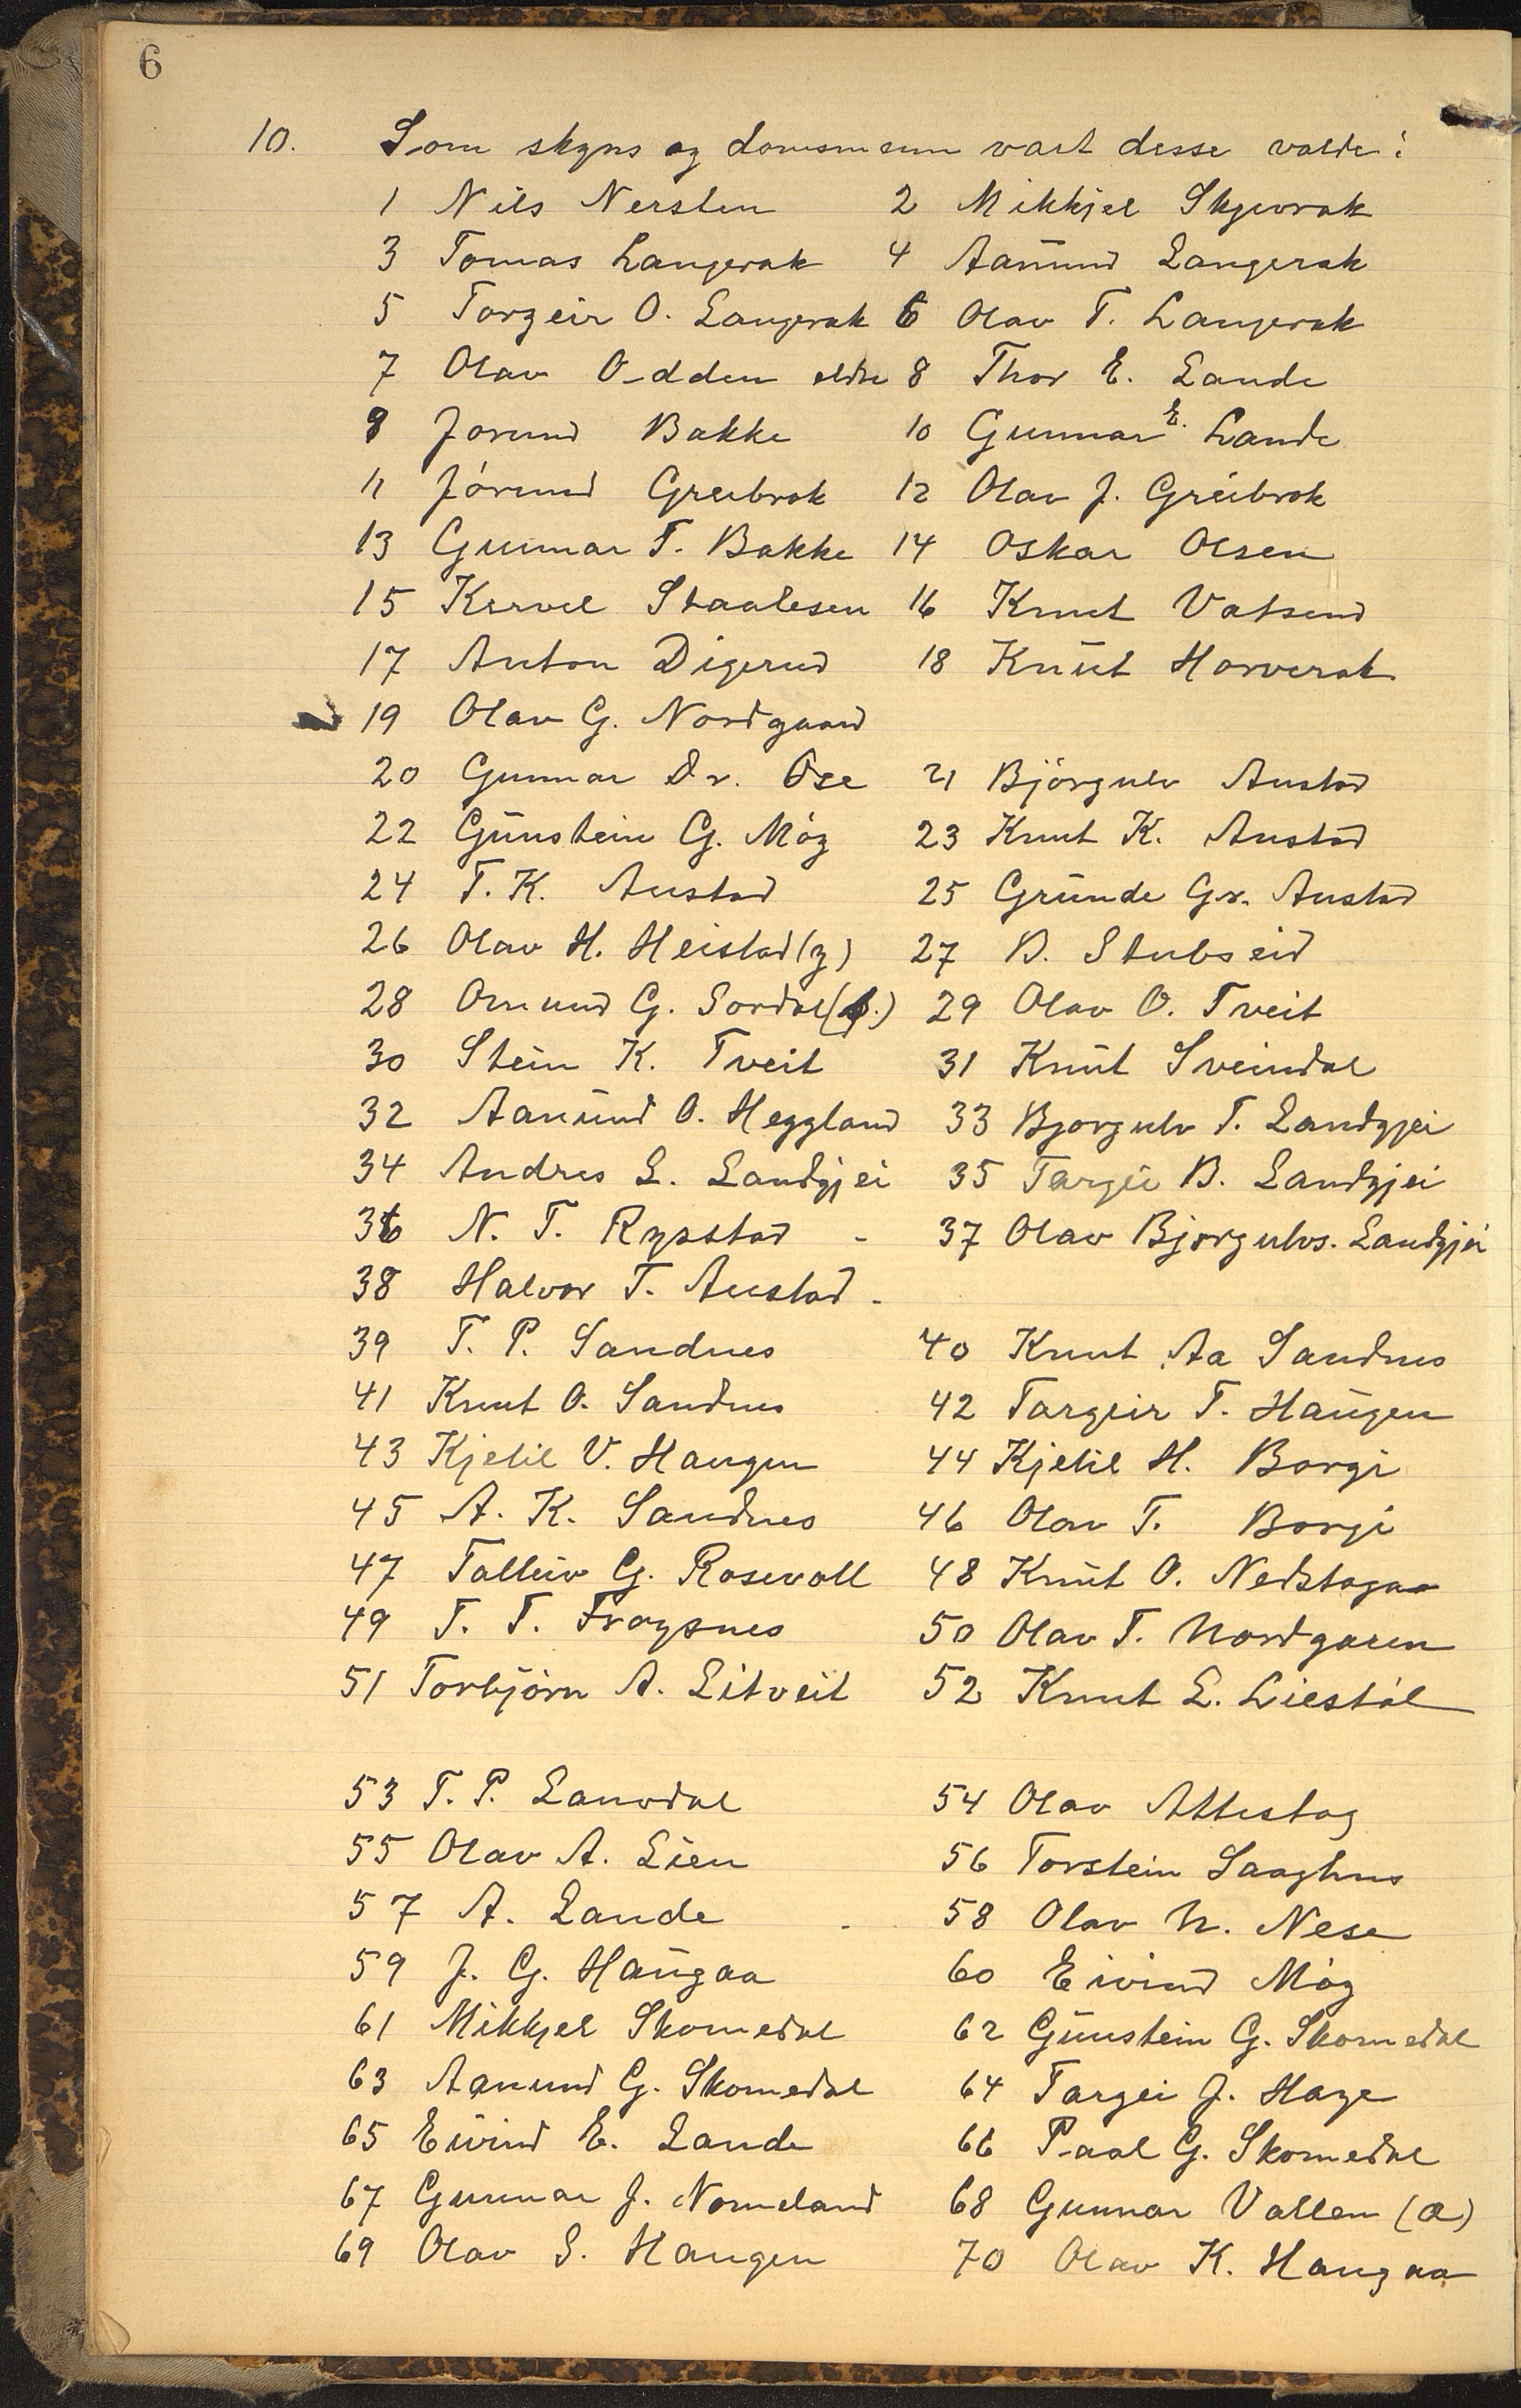 6
10. Som skyns og domsmenn vart desse valde:
1 Nils Nersten 2 Mikkjel Skjevrak
3 Tomas Langerak 4 Aamund Langerak
5 Torgeir O. Langerak 6 Olav T. Langerak
7 Olav Odden eldre 8 Thor E. Lande
9 Jorund Bakke 10 Gunnar E. Lande
11 Jórund Greibrok 12 Olav J. Greibrok
13 Gunnar T. Bakke 14 Oskar Olsen
15 Staalesen 16 Knut Vatsend
17 Anton Digerud 18 Knut Horverak
19 Olav G. Nordgaard
20 Gunnar Dr. Ose 21 Bjørgulv Austad
22 Gunstein G. Móg 23 Knut K. Austad
24 T. K. Austad 25 Grunde Gr. Austad
26 Olav H. Heistad (y) 27 B. Stubseid
28 Omund G. Sordal 29 Olav O. Tveit
30 Stein K. Tveit 31 Knut Sveindal
32 Aanund O. Heggland 33 Bjorgulv T. Landgjei
34 Andres L. Landgjei 35 Targei B. Landgjei
36 N. T. Rysstad - 37 Olav Bjorgulvs. Landgjei
38 Halvor T. Austad -
39 T. P. Sandnes 40 Knut Aa Sandnes
41 Knut O. Sandnes 42 Targeir T. Haugen
43 Kjetil V. Haugen 44 Kjetil H. Borgi
45 A. K. Sandnes 46 Olav T. Borgi
47 Talleiv G. Rosevoll 48 Knut O. Nedstogaa
49 T. T. Frøysnes 50 Olav T. Nordgaren
51 Torbjörn A. Litveit 52 Knut L. Liestól
53 T. P. Lauvdal 54 Olav Attestog
55 Olav A. Lien 56 Torstein Saaghus
57 A. Lande - 58 Olav N. Nese
59 J. G. Haugaa 60 Eivind Móg
61 Mikkjel Skomedal 62 Gunstein G. Skomedal
63 Aanund G. Skomedal 64 Targei J. Hage
65 Eivind E. Lande 66 Paal G. Skomedal
67 Gunnar J. Nomeland 68 Gunnar Vallen (a)
69 Olav S. Haugen 70 Olav K. Haugaa